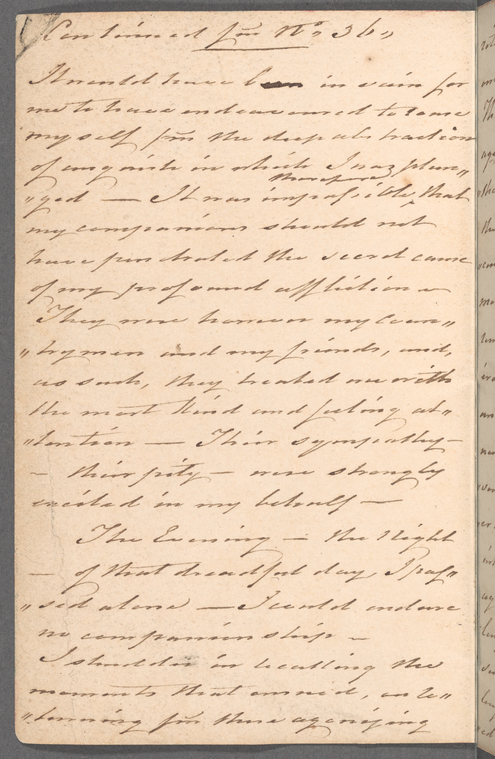 Continued fm No. 36 "
It would have been in vain for
me to have endeavoured to rouse
myself fm the deep abstraction
of anguish in which I was plun "
therefore
" ged — It was impossible that
my companions should not
have penetrated the secret cause
of my profound affliction —
They were however my Coun "
" trymen and my friends, and,
as such, they treated me with
the most kind and feeling at "
" tention — Their sympathy —
— their pity — were strongly
excited in my behalf —
The Evening — the Night
— of that dreadful day, I pas "
" sed alone — I could endure
no companionship —
I shudder in recalling the
moments that ensued, on re "
" turning fm those agonizing